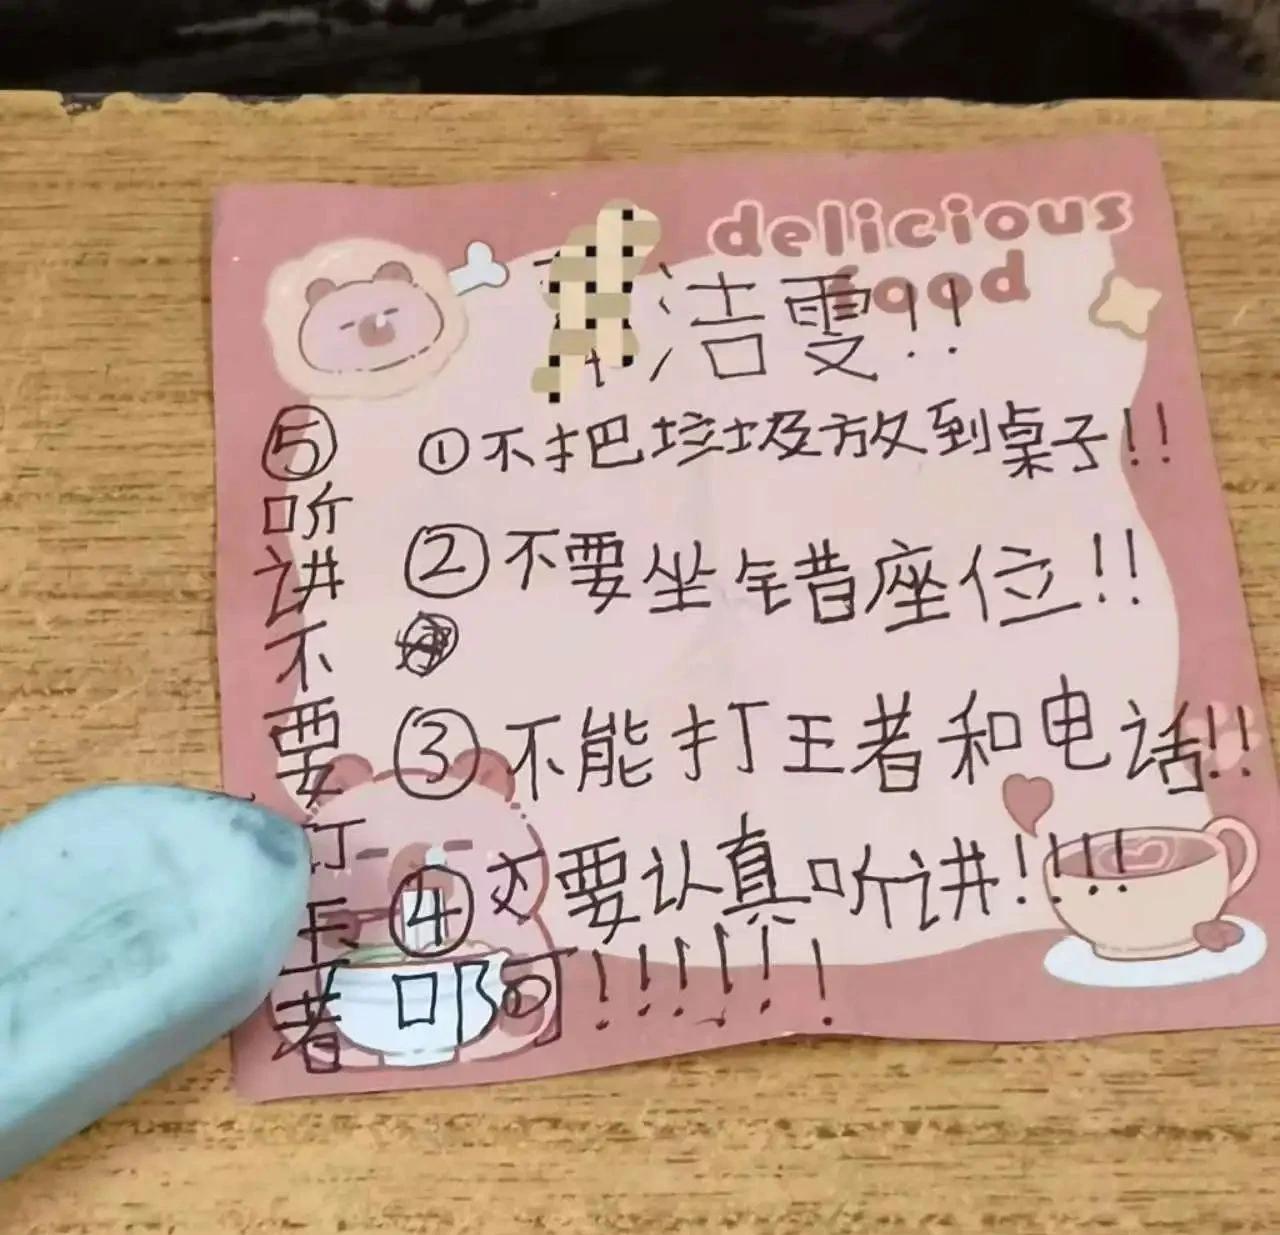 delicious
food
洁雯!!
①不把垃圾放到桌子!!
②不要坐错座位!!
③不能打王者和电话!!
④要认真听讲!!!!
啊!!!!!!
⑤听讲不要打王者